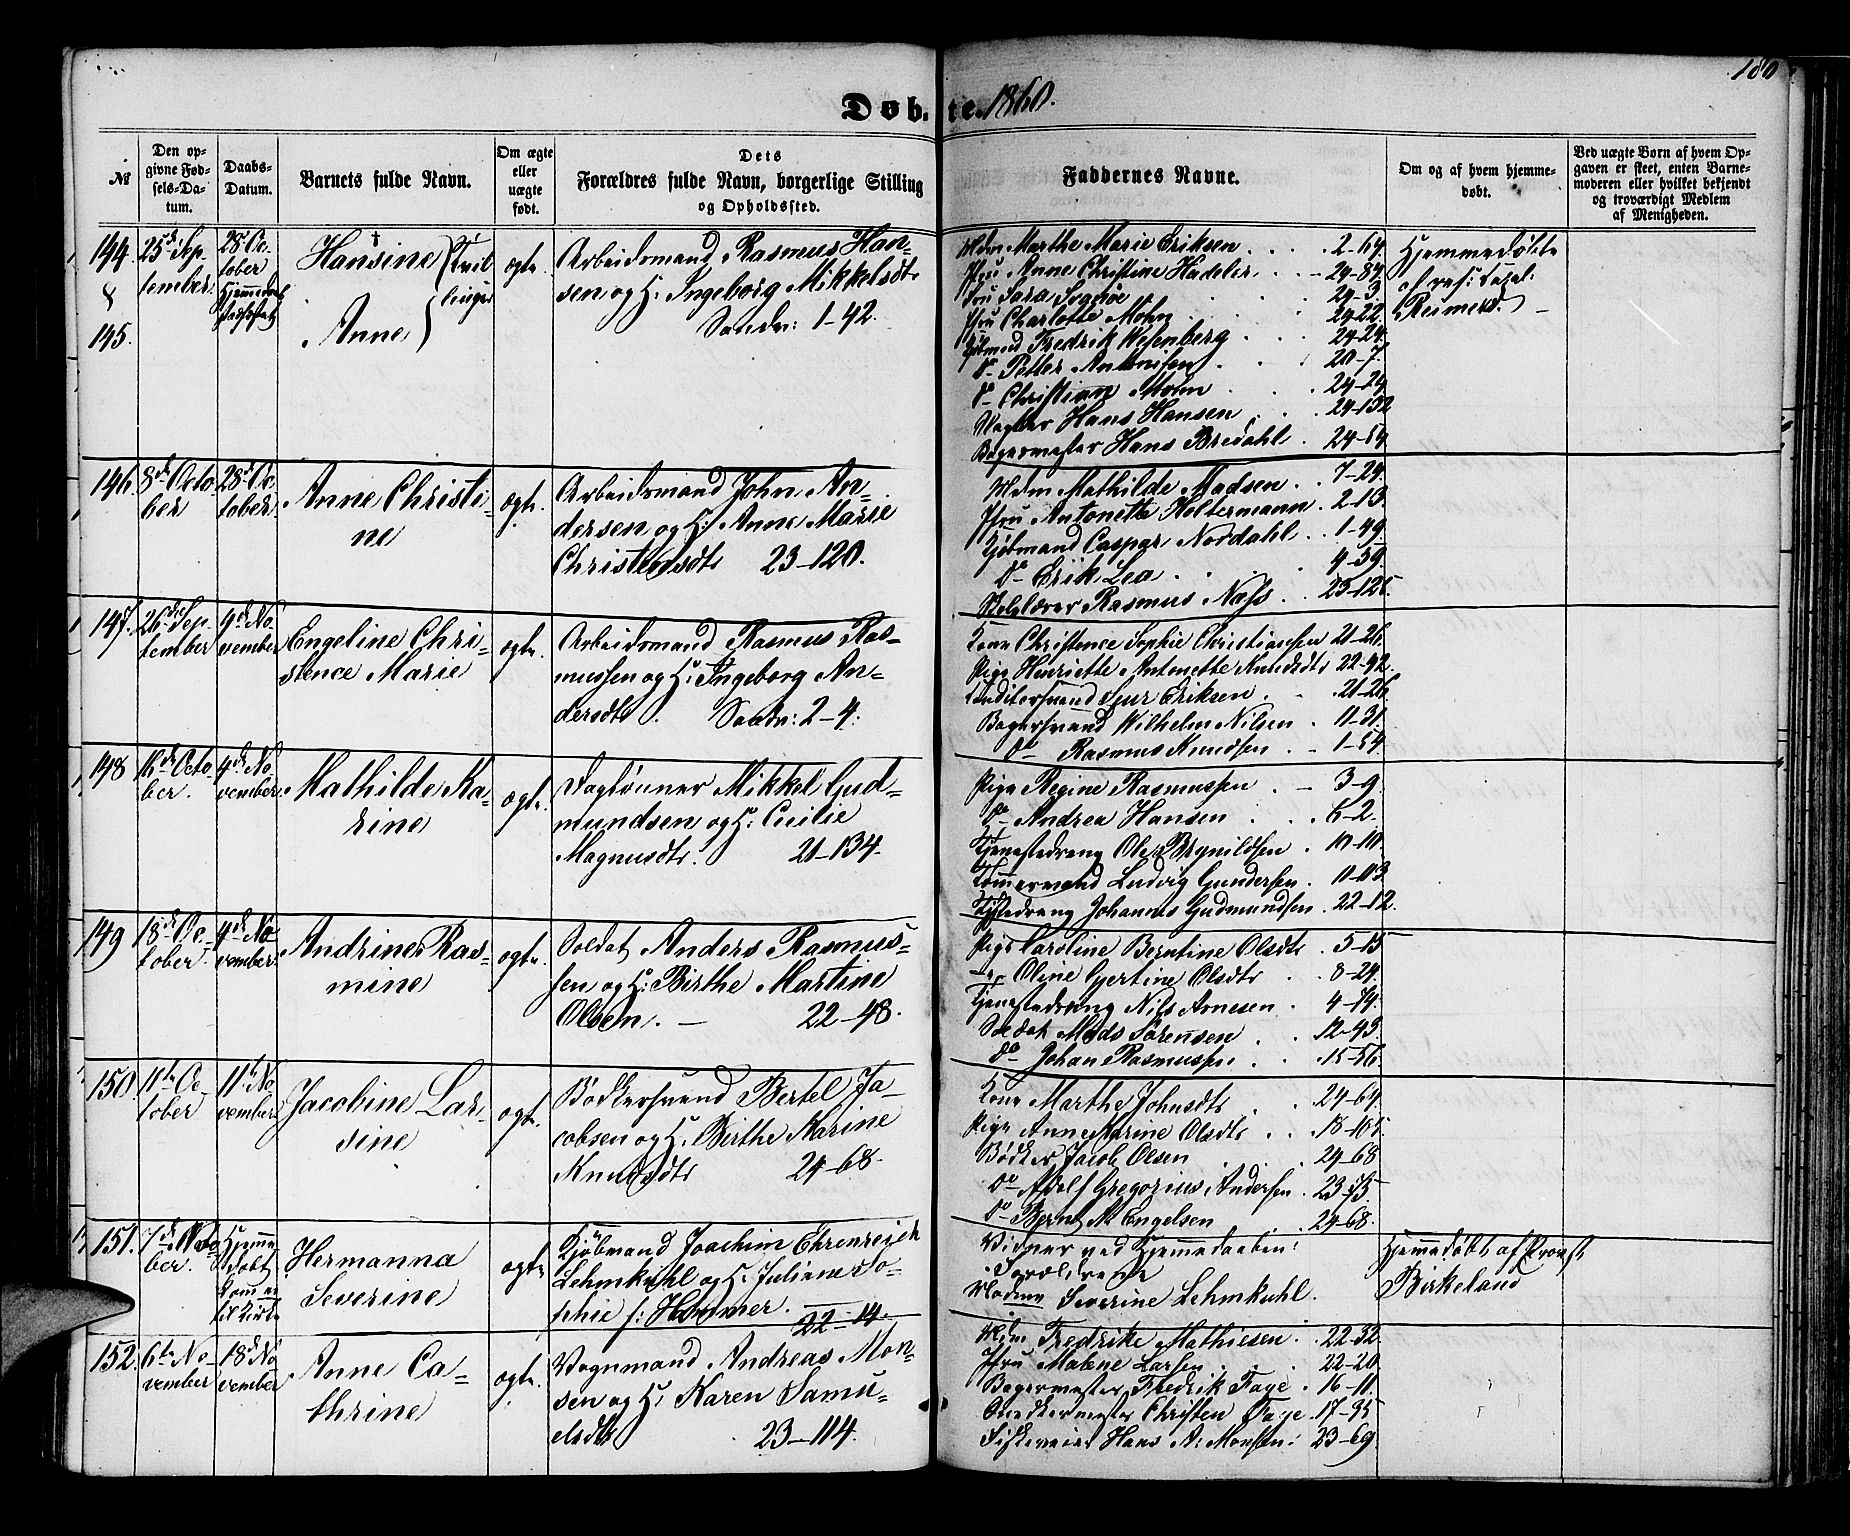 180
Døbte. 1860.
№
Den opgivne Fødsels-Datum.
Daabs-Datum.
Barnets fulde Navn.
Om ægte eller uægte født.
Dets
Forældres fulde Navn, borgerlige Stilling
og Opholdssted.
Faddernes Navne.
Om og af hvem hjemmedøbt.
Ved uægte Børn af hvem Opgaven er skeet, enten Barnemoderen eller hvilket bekjendt og troværdigt Medlem af Menigheden.
144
&
145.
25de September.
28 October
Hansine
Anne
Tvillinger
ægte
Arbeidsmand Rasmus Hansen og H: Ingeborg Mikkelsdtr
Sandv: 1-42.
Mdm Marthe Marie Eriksen . . . 2-64.
Fru Anne Christine Hadeler . . 24-84
Fru Sara 24-3
Fru Charlotte Mohn . . 24-22.
Kjøbmand Fredrik Wesenberg . . 24-24.
Do Petter Antonisen . 20-7.
Do Christian Mohn . 24-24
Hans Hansen . . 24-132
Bagermester Hans Bredahl . 24-54
Hjemmedøbte
af
146.
8de October
28de October
Anne Christine
ægte.
Arbeidsmand John Andersen og H: Anne Marie
Christensdtr 23-120.
Mdm Mathilde Madsen . . 7-24.
Fru Antonette Holtermann . 2-13.
Kjøbmand Caspar Nordahl . . 1-49
Do Erik Lea . . . 4-59.
Rasmus Næss . 23-125
147.
26de September
4de November
Engeline Christence Marie
ægte.
Arbeidsmand Rasmus Rasmussen og H: Ingeborg Andersdtr. Sandv: 2-4.
Kone Christence Sophie Christiansen 21-26.
Pige Henriette Antonette Knudsdtr 22-92.
Conditorsvend Sjur Eriksen . . 21-26
Bagersvend Wilhelm Nilsen . 11-31
Do Rasmus Knudsen . . 1-54
148
16de October.
4de November.
Mathilde Karine
ægte.
Fagtønner Mikkel Gudmundsen og H: Cicilie
Magnusdtr. 21-134.
Pige Regine Rasmussen . . 3-9.
Do Andrea Hansen . . 6-2.
Tjenestedreng Ole Brynildsen . 10-10.
Tømmermand Ludvig Gundersen . 11-103
Tjstedreng Johannes Gudmundsen . 22-12.
149
18de October.
4de November.
Andrine Rasmine
ægte.
Soldat Anders Rasmussen og H: Birthe Martine
Olsen. 22-48.
Pige Caroline Berntine Olsdtr . 5-15
Oline Gjertine Olsdtr . 8-24.
Tjenestedreng Nils Arnesen . 4-74.
Soldat Mads Sørensen . . 12-93
Do Johan Rasmussen . . 15-56.
150.
11te October
11te November
Jacobine Larsine
ægte.
Bødkersvend Bertel Jacobsen og H: Birthe Karine
Knudsdtr 24-68.
Kone Marthe Johnsdtr . 24-64.
Pige Anne Marine Olsdtr . . 18-105.
Bødker Jacob Olsen . 24-68
Do Adolf Gregorius Andersen . 23-73.
Do Bernt M. Engelsen . 24-68.
151.
7de November.
Hjemmedøbt
Hermanna
Severine
ægte
Kjøbmand Joachim Ehrenreich
Lehmkuhl og H: Juliane Sophie f: Hammer. 22-14.
Vidner ved Hjemmedaaben:
Forældrene
Severine Lehmkuhl.
Hjemmedøbt af Provst
Birkeland
152.
6te November
18de November
Anne Cathrine
ægte.
Vognmand Andreas Monsen og H: Karen Samuelsdtr
23-114.
Mdm Fredrike Mathiesen . 22-32
Fru Malene Larsen . . 22-20
Bagermester Fredrik Faye . 16-11.
Snedkermester Christen Faye . 17-35
Hans A: Monsen . 23-69.